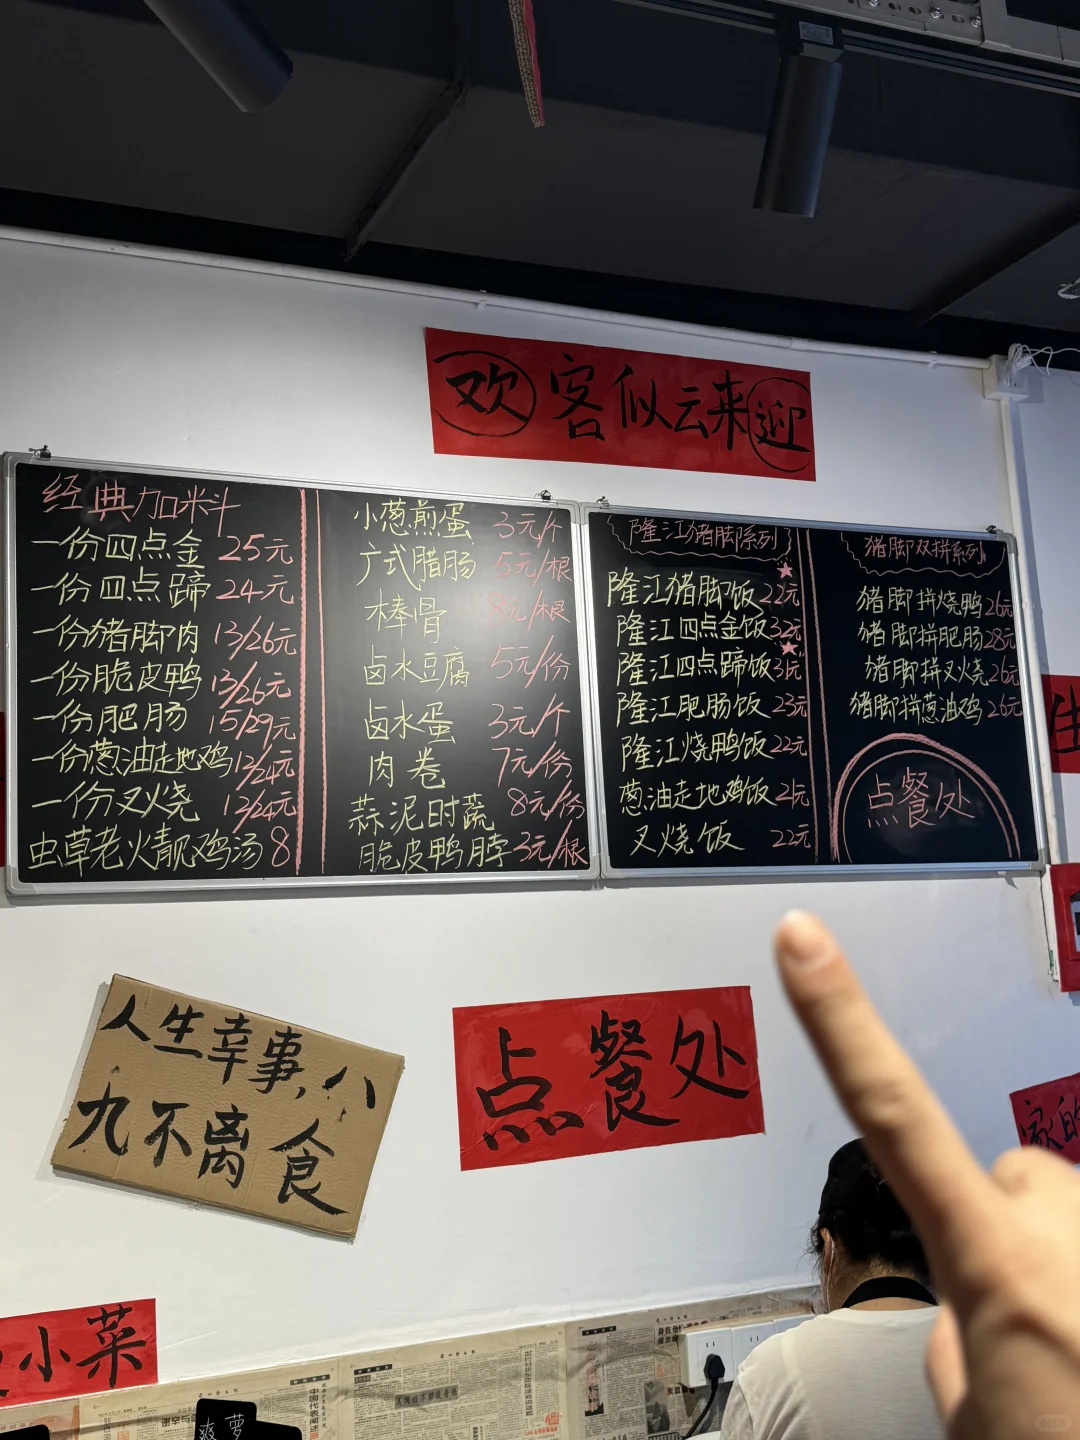 欢客似云来迎
经典加料
一份四点金 25元
一份四点蹄 24元
一份猪脚肉 13/26元
一份脆皮鸭 13/26元
一份肥肠 15/29元
一份葱油走地鸡 12/24元
一份叉烧 12/24元
虫草老火靓鸡汤 8
小葱煎蛋 3元/个
广式腊肠 5元/根
木棒骨 8元/根
卤水豆腐 5元/份
卤水蛋 3元/个
肉卷 7元/份
蒜泥时蔬 8元/份
脆皮鸭脖 3元/根
隆江猪脚系列
隆江猪脚饭 22元
隆江四点金饭 32元
隆江四点蹄饭 31元
隆江肥肠饭 23元
隆江烧鸭饭 22元
葱油走地鸡饭 21元
叉烧饭 22元
猪脚双拼系列
猪脚拼烧鸭 26元
猪脚拼肥肠 28元
猪脚拼叉烧 26元
猪脚拼葱油鸡 26元
点餐处
人生幸事,八
九不离食
点餐处
家的
小菜
爽 萝